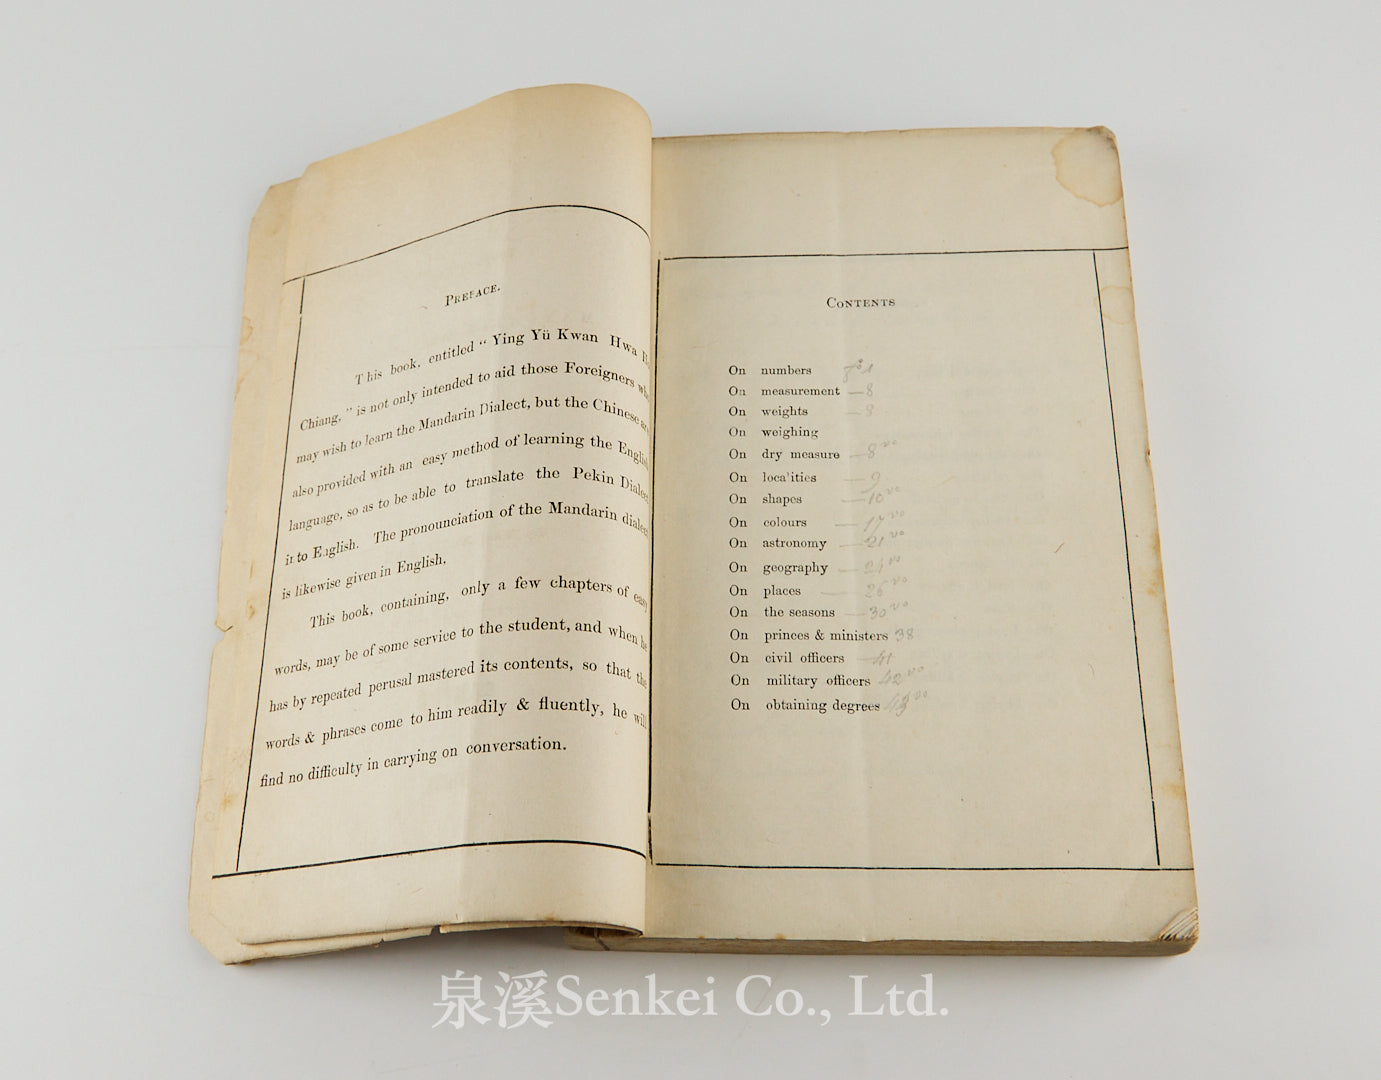 PREFACE.
This book, entitled " Ying Yü Kwan Hwa
Chiang, " is not only intended to aid those Foreigners
may wish to learn the Mandarin Dialect, but the Chinese
also provided with an easy method of learning the
language, so as to be able to translate the Pekin
into English. The pronounciation of the Mandarin
is likewise given in English.
This book, containing, only a few chapters of easy
words, may be of some service to the student, and when he
has by repeated perusal mastered its contents, so that the
words & phrases come to him readily & fluently, he will
find no difficulty in carrying on conversation.
CONTENTS
On numbers
On measurement — 8
On weights — 8
On weighing
On dry measure — 8 vo
On localities — 9
On shapes — 10 vo
On colours — 17 vo
On astronomy — 21 vo
On geography — 24 vo
On places — 26 vo
On the seasons — 30 vo
On princes & ministers 38
On civil officers — 41
On military officers — 42 vo
On obtaining degrees 43 vo
泉溪Senkei Co., Ltd.